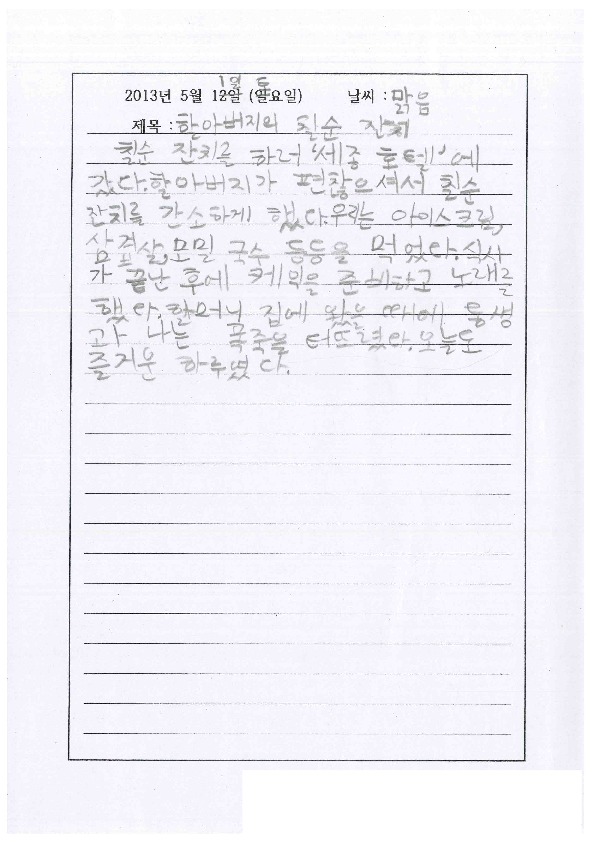 1일 토
2013년 5월 12일 (일요일) 날씨 : 맑음
제목 : 한아버지의 칠순 잔치
칠순 잔치를 하러 '세종 호텔'에
갔다.할아버지가 편찮으셔서 칠순
잔치를 간소하게 했다.우리는 아이스크림,
삼겹살,모밀 국수 등등을 먹었다.식사
가 끝난 후에 케익을 준비하고 노래를
했다.할머니 집에 왔을 때에 동생
과 나는 폭죽을 터뜨렸다.오늘도
즐거운 하루였다.